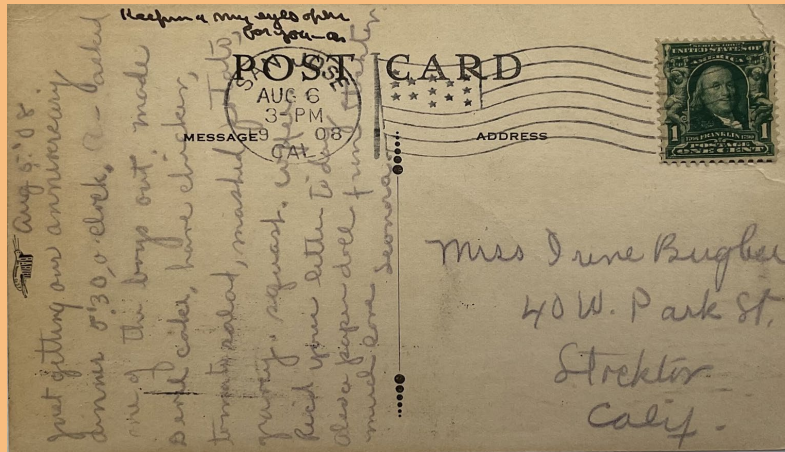 Keeping my eyes open
for you—as
POST CARD
SAN JOSE
AUG 6
3-PM
9 08
CAL
MESSAGE
ADDRESS
SERIES 1902
UNITED STATES OF
AMERICA
1 1
FRANKLIN
POSTAGE
ONE CENT
Aug 5. '08.
Just getting our anniversary
dinner 5:30 o'clock,
one of the boys out. made
Devil cake, have chicken,
tomato salad, mashed potato,
gravy, squash,
Rec'd your letter today
paper doll from
much love Leonora.
Miss Irene Bugbee
40 W. Park St.
Stockton
Calif.